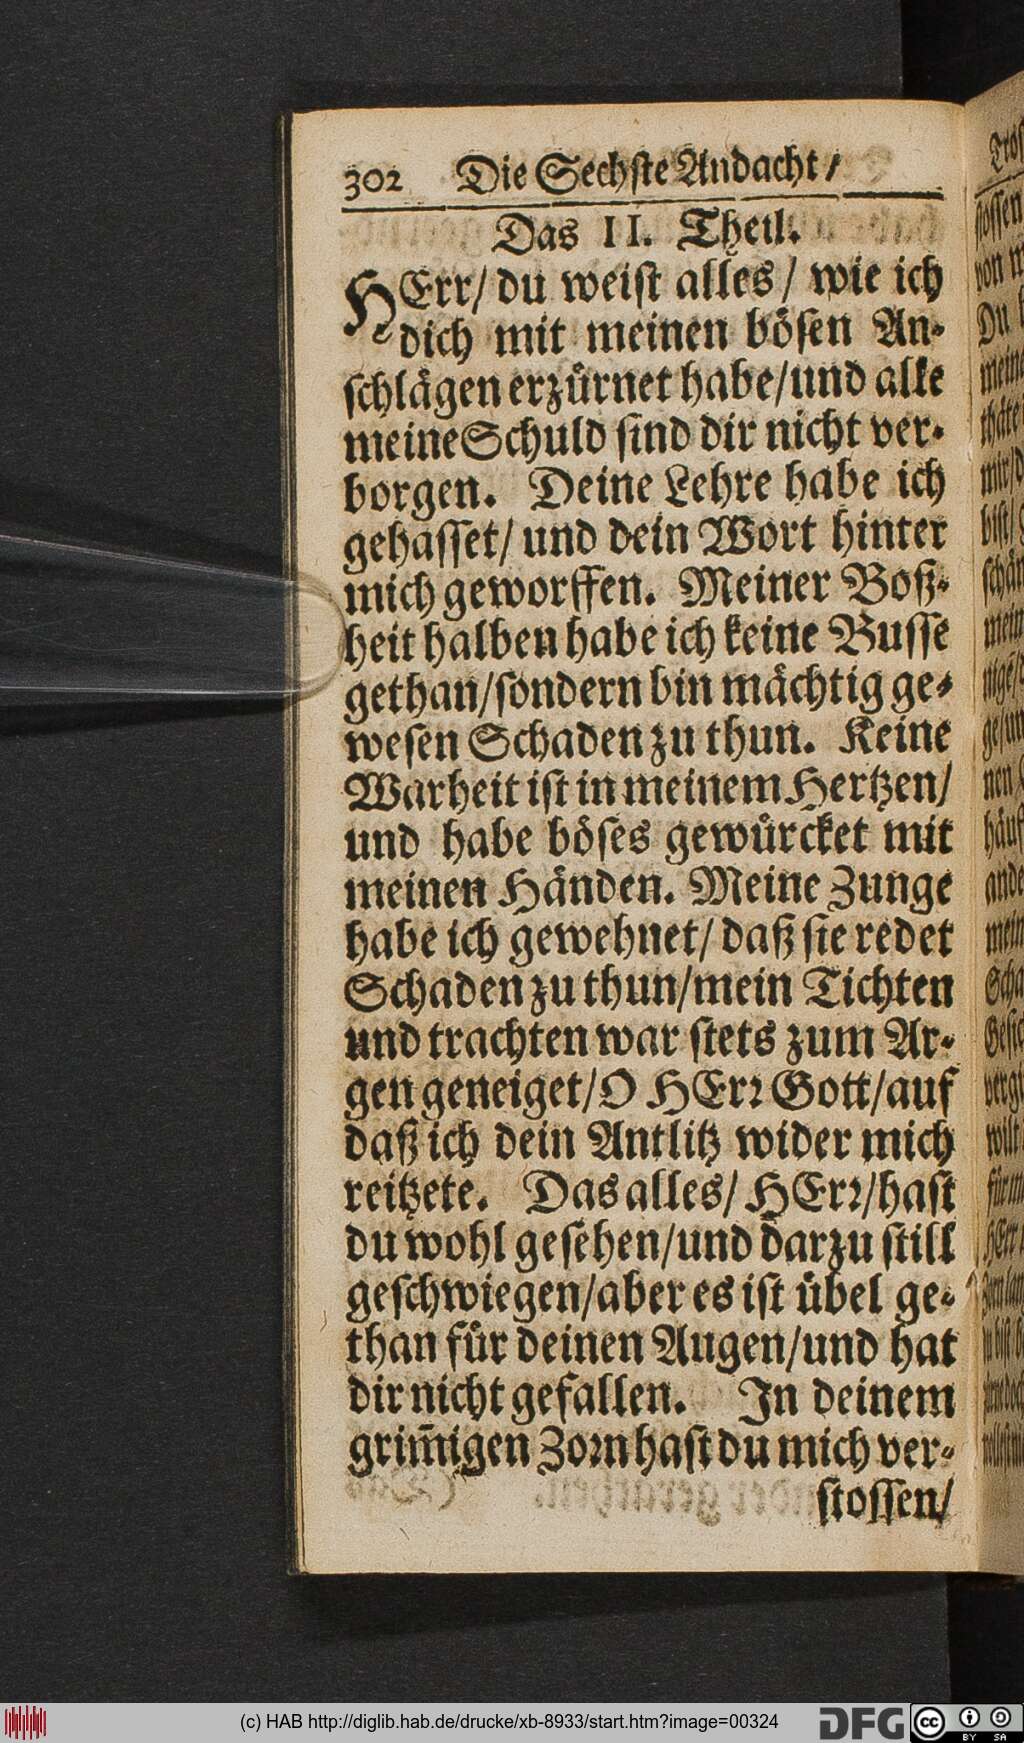 302 Die Sechste Andacht/
Das II. Theil.
HErr/ du weist alles/ wie ich
dich mit meinen bösen An-
schlägen erzürnet habe/und alle
meine Schuld sind dir nicht ver-
borgen. Deine Lehre habe ich
gehasset/ und dein Wort hinter
mich geworffen. Meiner Boß-
heit halben habe ich keine Busse
gethan/sondern bin mächtig ge-
wesen Schaden zu thun. Keine
Warheit ist in meinem Hertzen/
und habe böses gewürcket mit
meinen Händen. Meine Zunge
habe ich gewehnet/ daß sie redet
Schaden zu thun/mein Tichten
und trachten war stets zum Ar-
gen geneiget/O HErr Gott/auf
daß ich dein Antlitz wider mich
reitzete. Das alles/ HErr/hast
du wohl gesehen/und darzu still
geschwiegen/aber es ist übel ge-
than für deinen Augen/und hat
dir nicht gefallen. In deinem
grim̅igen Zorn hast du mich ver-
stossen/
(c) HAB http://diglib.hab.de/drucke/xb-8933/start.htm?image=00324
DFG
cc BY SA